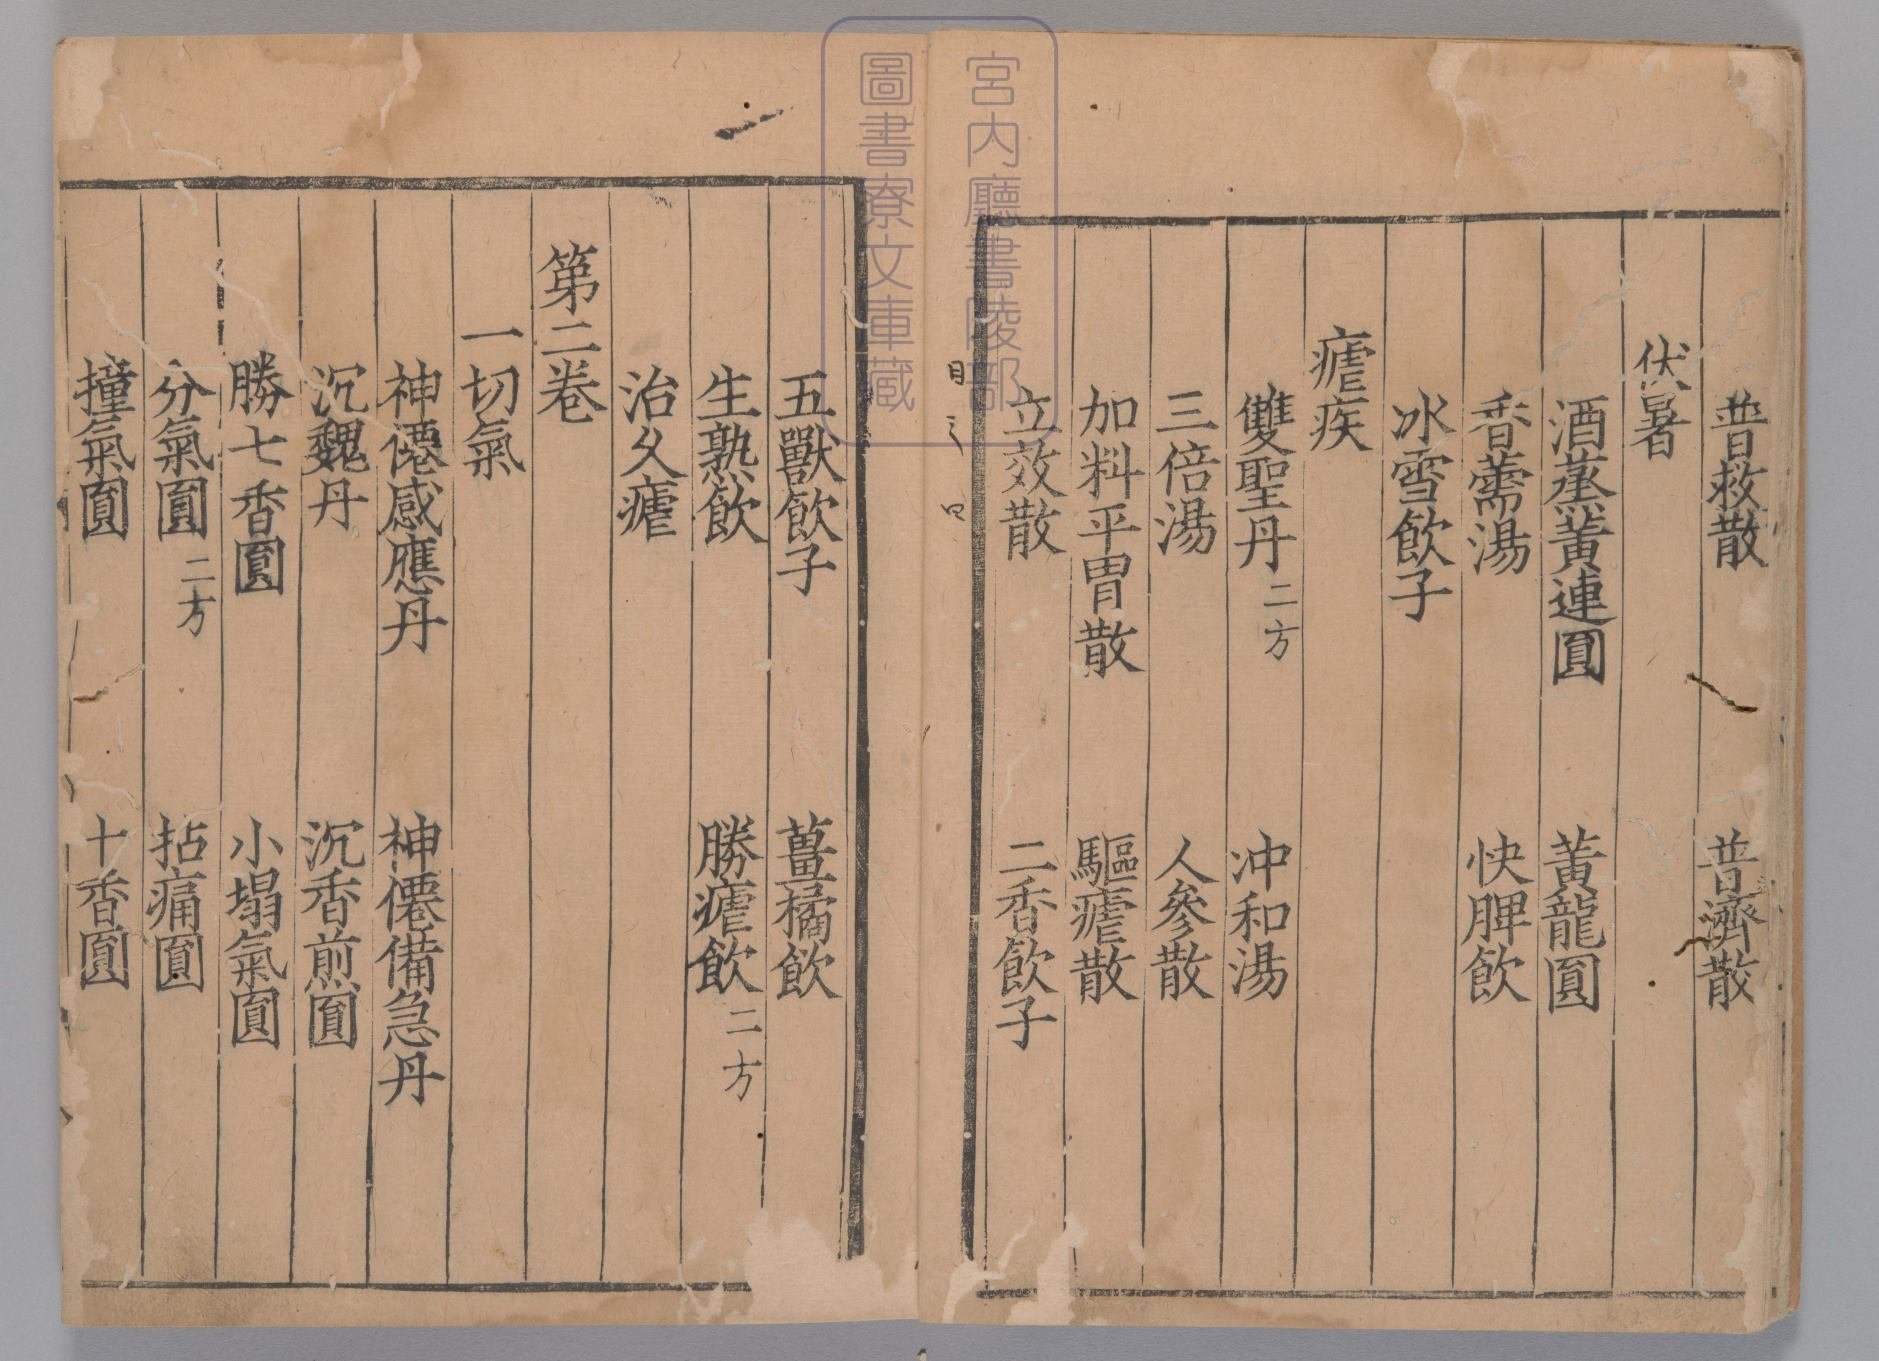 普救散　普濟散
伏暑
酒蒸黃連圓　黃龍圓
香薷湯　快脾飲
冰雪飲子
瘧疾
雙聖丹二方　冲和湯
三倍湯　人參散
加料平胃散　驅瘧散
立效散　二香飲子
目之
五獸飲子　薑橘飲
生熟飲　勝瘧飲二方
治久瘧
第二卷
一切氣
神僊感應丹　神僊備急丹
沉魏丹　沉香煎圓
勝七香圓　小塌氣圓
分氣圓二方　拈痛圓
撞氣圓　十香圓
宮內廳書陵部
圖書寮文庫蔵